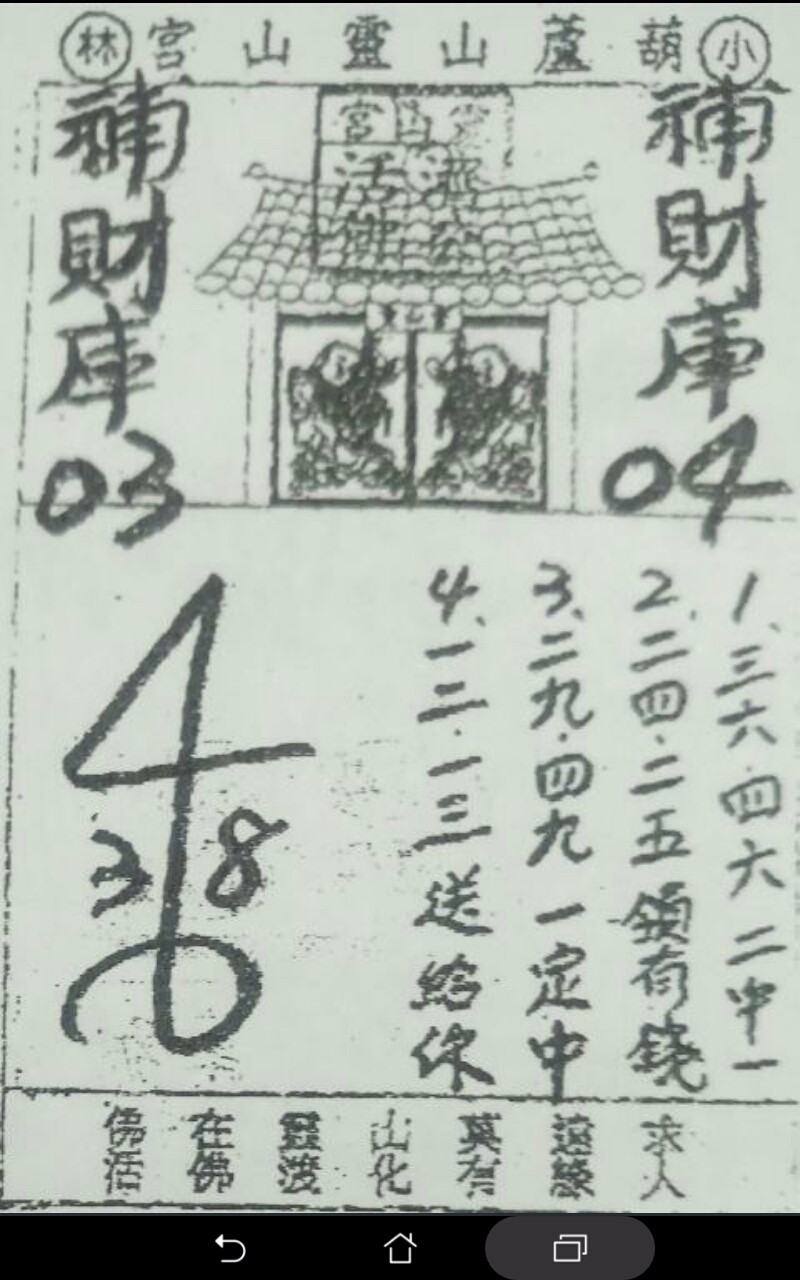 小葫蘆山靈山宮林
靈山宮
濟公
活佛
補財庫04
補財庫03
1、三六.四六二中一
2、二四.二五領有錢
3、二九.四九一定中
4、一二.一三送給你
4
3 8
佛在靈山莫遠求
活佛渡化有緣人